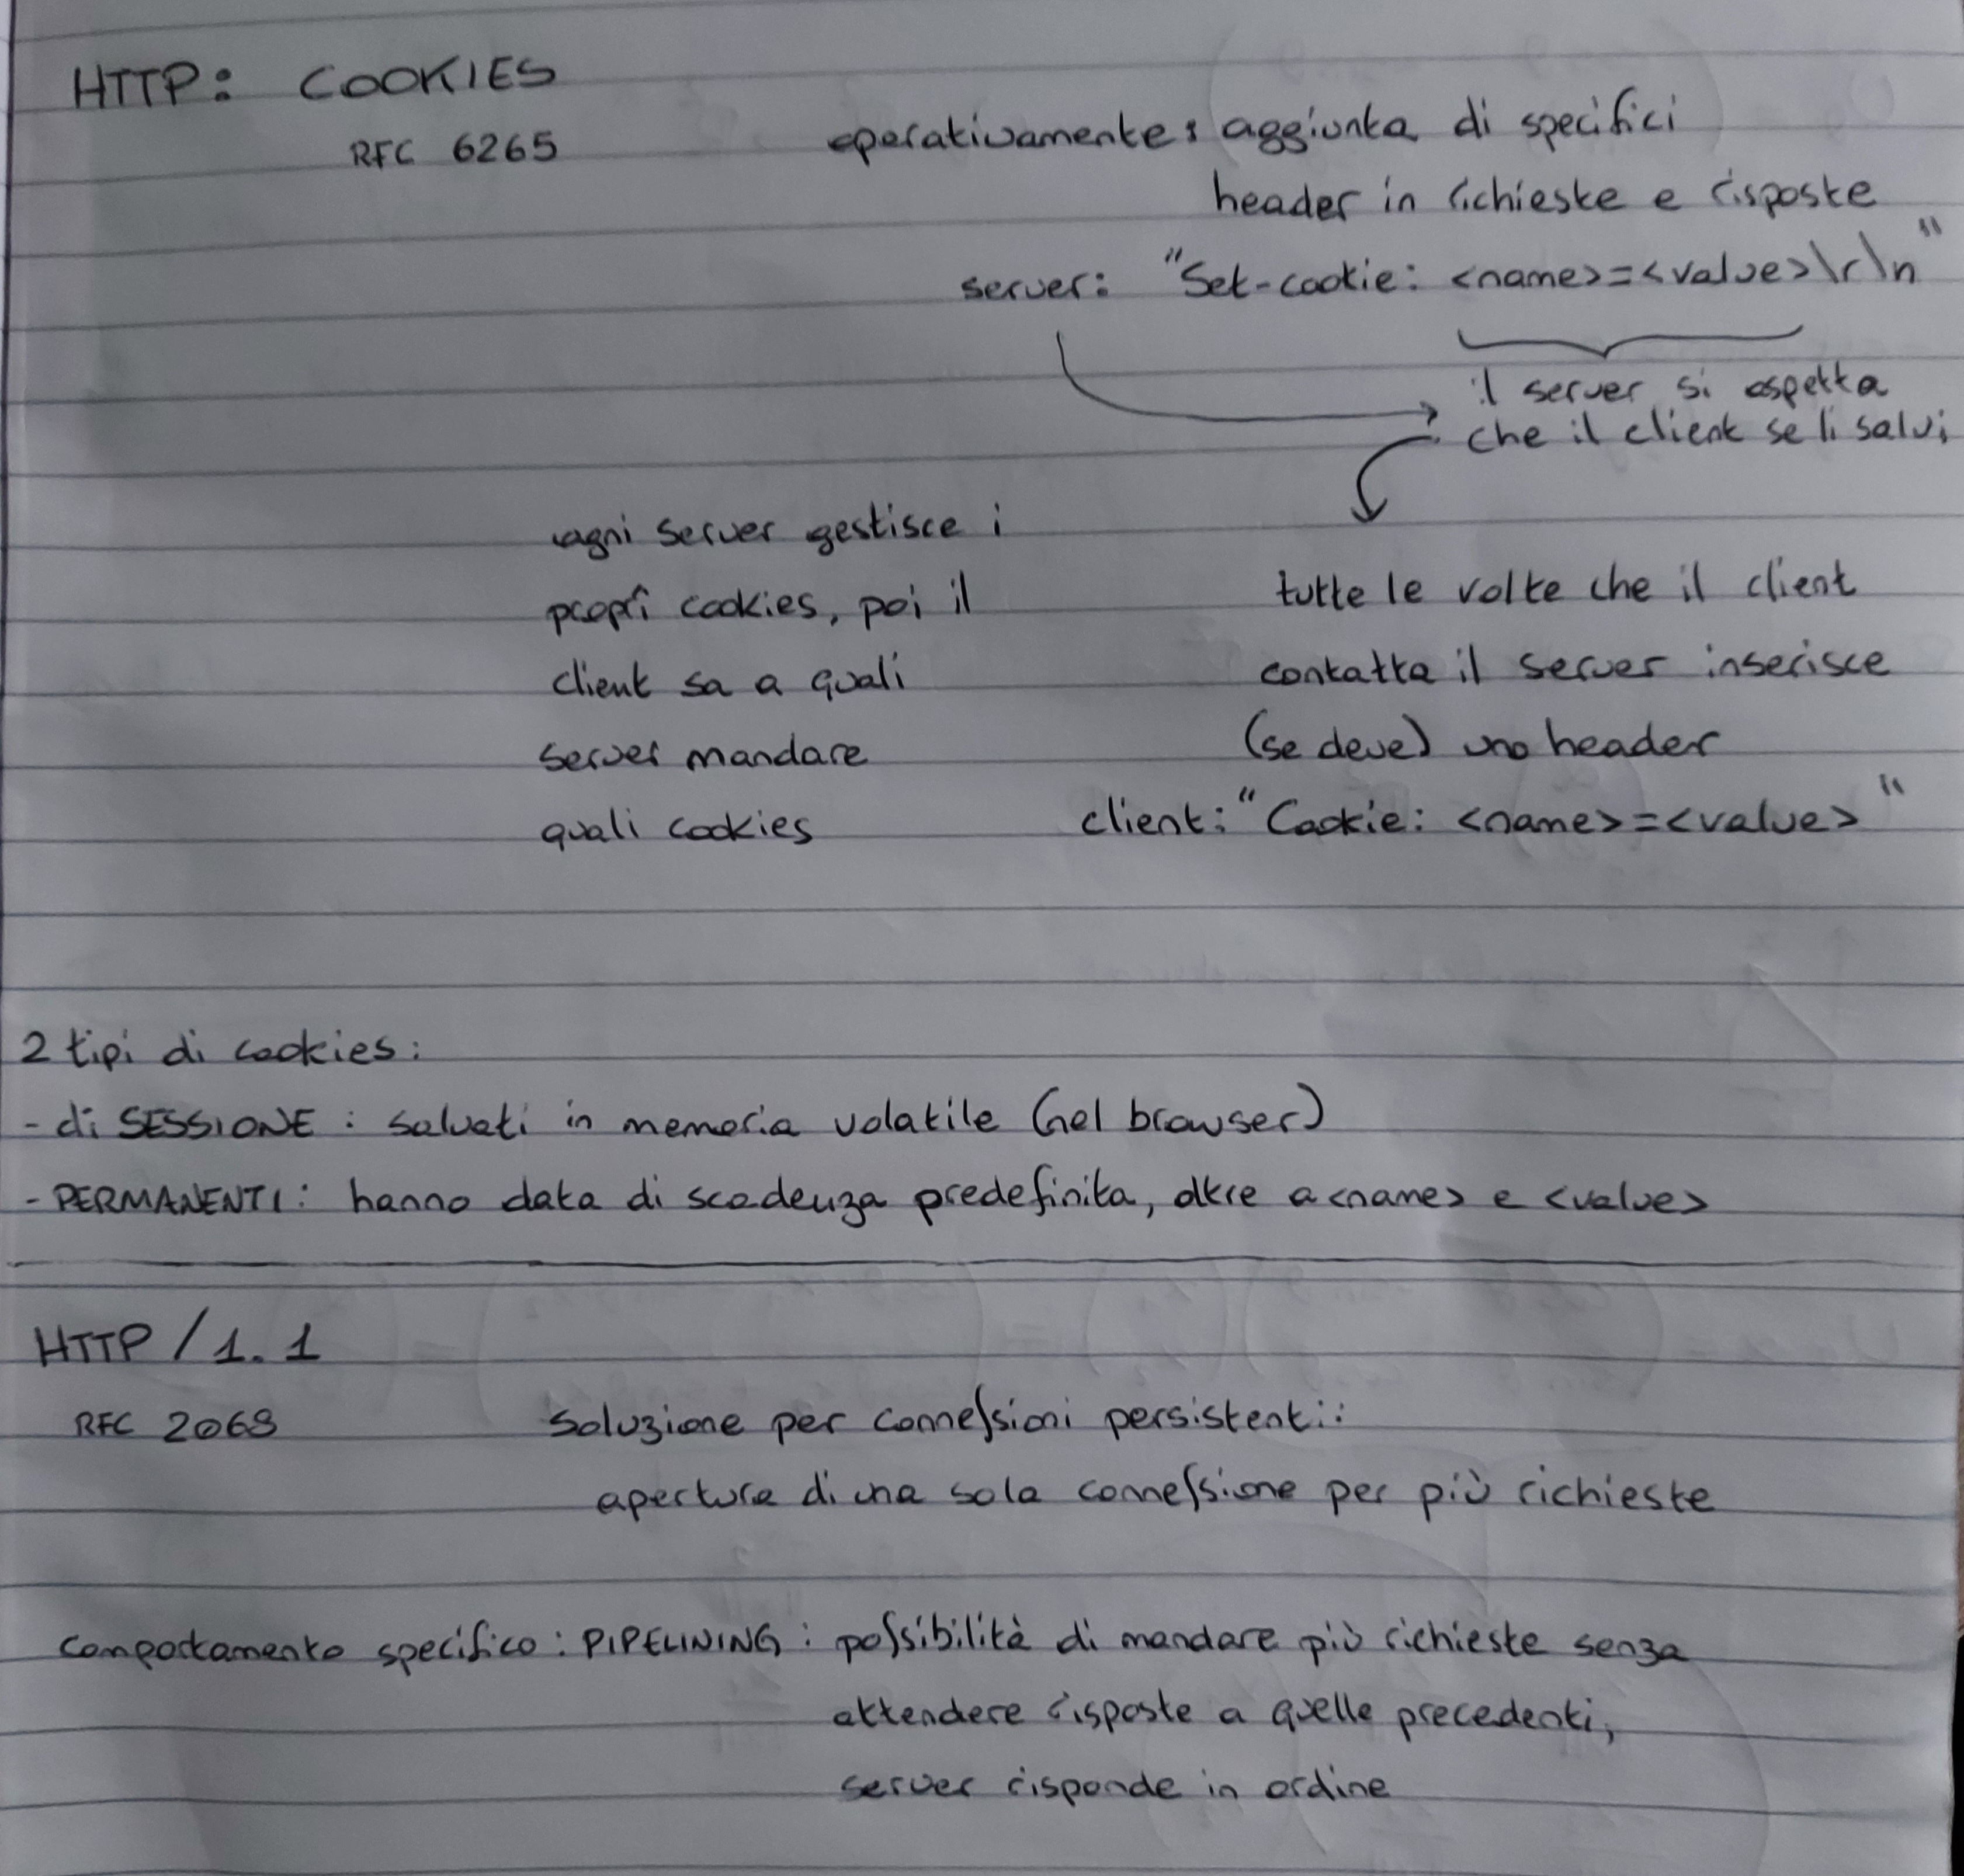 HTTP: COOKIES
RFC 6265
operativamente: aggiunta di specifici
header in richieste e risposte
server: "Set-cookie: <name>=<value>\r\n"
il server si aspetta
che il client se li salvi
ogni server gestisce i
propri cookies, poi il
client sa a quali
server mandare
quali cookies
tutte le volte che il client
contatta il server inserisce
(se deve) uno header
client: "Cookie: <name>=<value>"
2 tipi di cookies:
- di SESSIONE: salvati in memoria volatile (nel browser)
- PERMANENTI: hanno data di scadenza predefinita, oltre a <name> e <value>
HTTP/1.1
RFC 2068
soluzione per connessioni persistenti:
apertura di una sola connessione per più richieste
comportamento specifico: PIPELINING: possibilità di mandare più richieste senza
attendere risposte a quelle precedenti,
server risponde in ordine